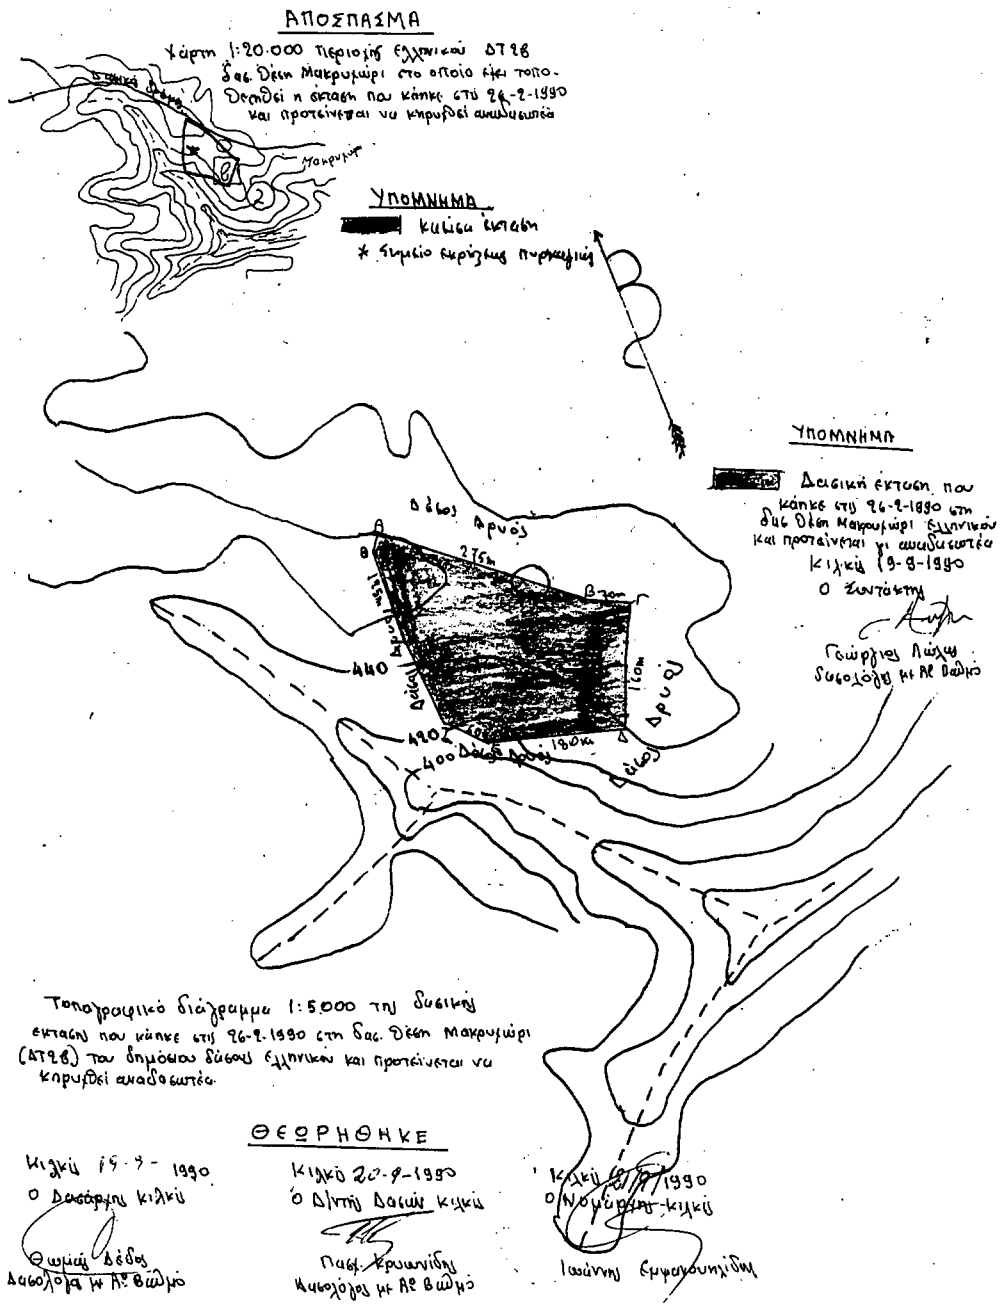 ΑΠΟΣΠΑΣΜΑ
Χάρτη 1:20.000 περιοχής Ελληνικού ΔΤ2β
δας. Θέση Μακρυχώρι στο οποίο έχει τοπο-
θετηθεί η έκταση που κάηκε στις 26-2-1990
και προτείνεται να κηρυχθεί αναδασωτέα
Δασικός
Μακρυχώρι
β
2
ΥΠΟΜΝΗΜΑ
καείσα έκταση
* Σημείο εκρήξεως πυρκαγιάς
ΥΠΟΜΝΗΜΑ
Δασική έκταση που
κάηκε στις 26-2-1990 στη
δας. Θέση Μακρυχώρι Ελληνικού
και προτείνεται γι αναδασωτέα
Κιλκίς 19-9-1990
Ο Συντάκτης
Γεώργιος
Δασολόγος με Αº Βαθμό
Δάσος Δρυός
Α
Θ
275m
Β 70m Γ
195m
Δάσος Δρυός
160m
Δάσος Δρυός
440
420 Ζ
Δ
180m
400 Δάσος Δρυός
Τοπογραφικό διάγραμμα 1:5.000 της δασικής
έκτασης που κάηκε στις 26-2-1990 στη δας. Θέση Μακρυχώρι
(ΔΤ2β) του δημόσιου δάσους Ελληνικού και προτείνεται να
κηρυχθεί αναδασωτέα.
ΘΕΩΡΗΘΗΚΕ
Κιλκίς 19-9-1990
Ο Δασάρχης Κιλκίς
Θωμάς Δέδος
Δασολόγος με Αº Βαθμό
Κιλκίς 20-9-1990
Ο Δ/ντής Δασών Κιλκίς
Πασχ. Κρυωνίδης
Δασολόγος με Αº Βαθμό
Κιλκίς 1990
Ο Νομάρχης Κιλκίς
Ιωάννης Εμμανουηλίδης